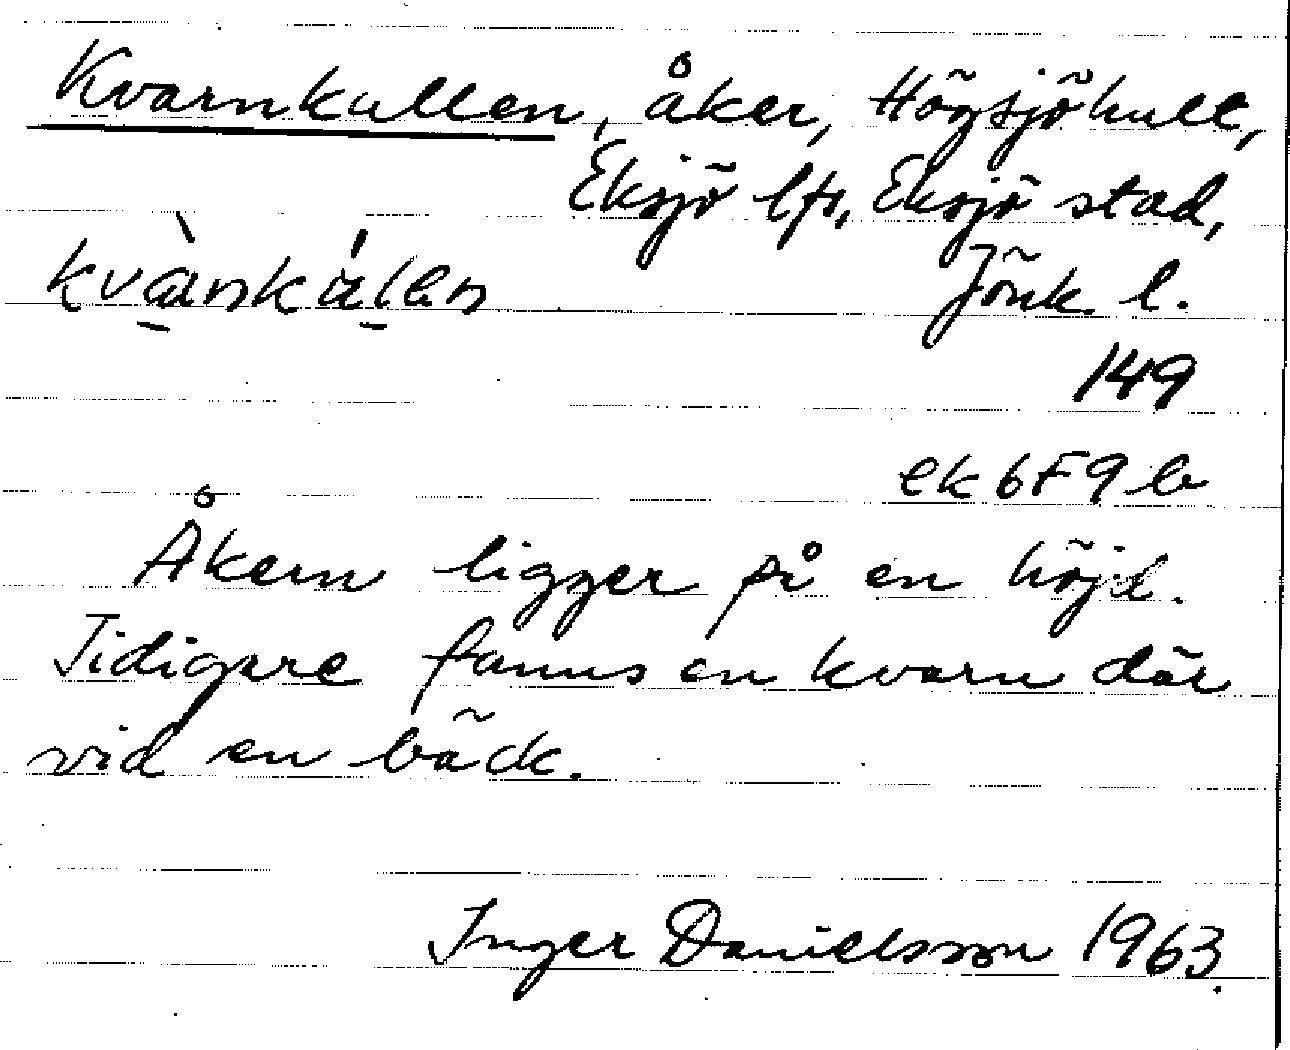 Kvarnkullen, åker, Högsjöhult,
Eksjö lfs, Eksjö stad,
Jönk. l.
149
ek 6F9b
Åkern ligger på en höjd.
Tidigare fanns en kvarn där
vid en bäck.
Inger Danielsson 1963.